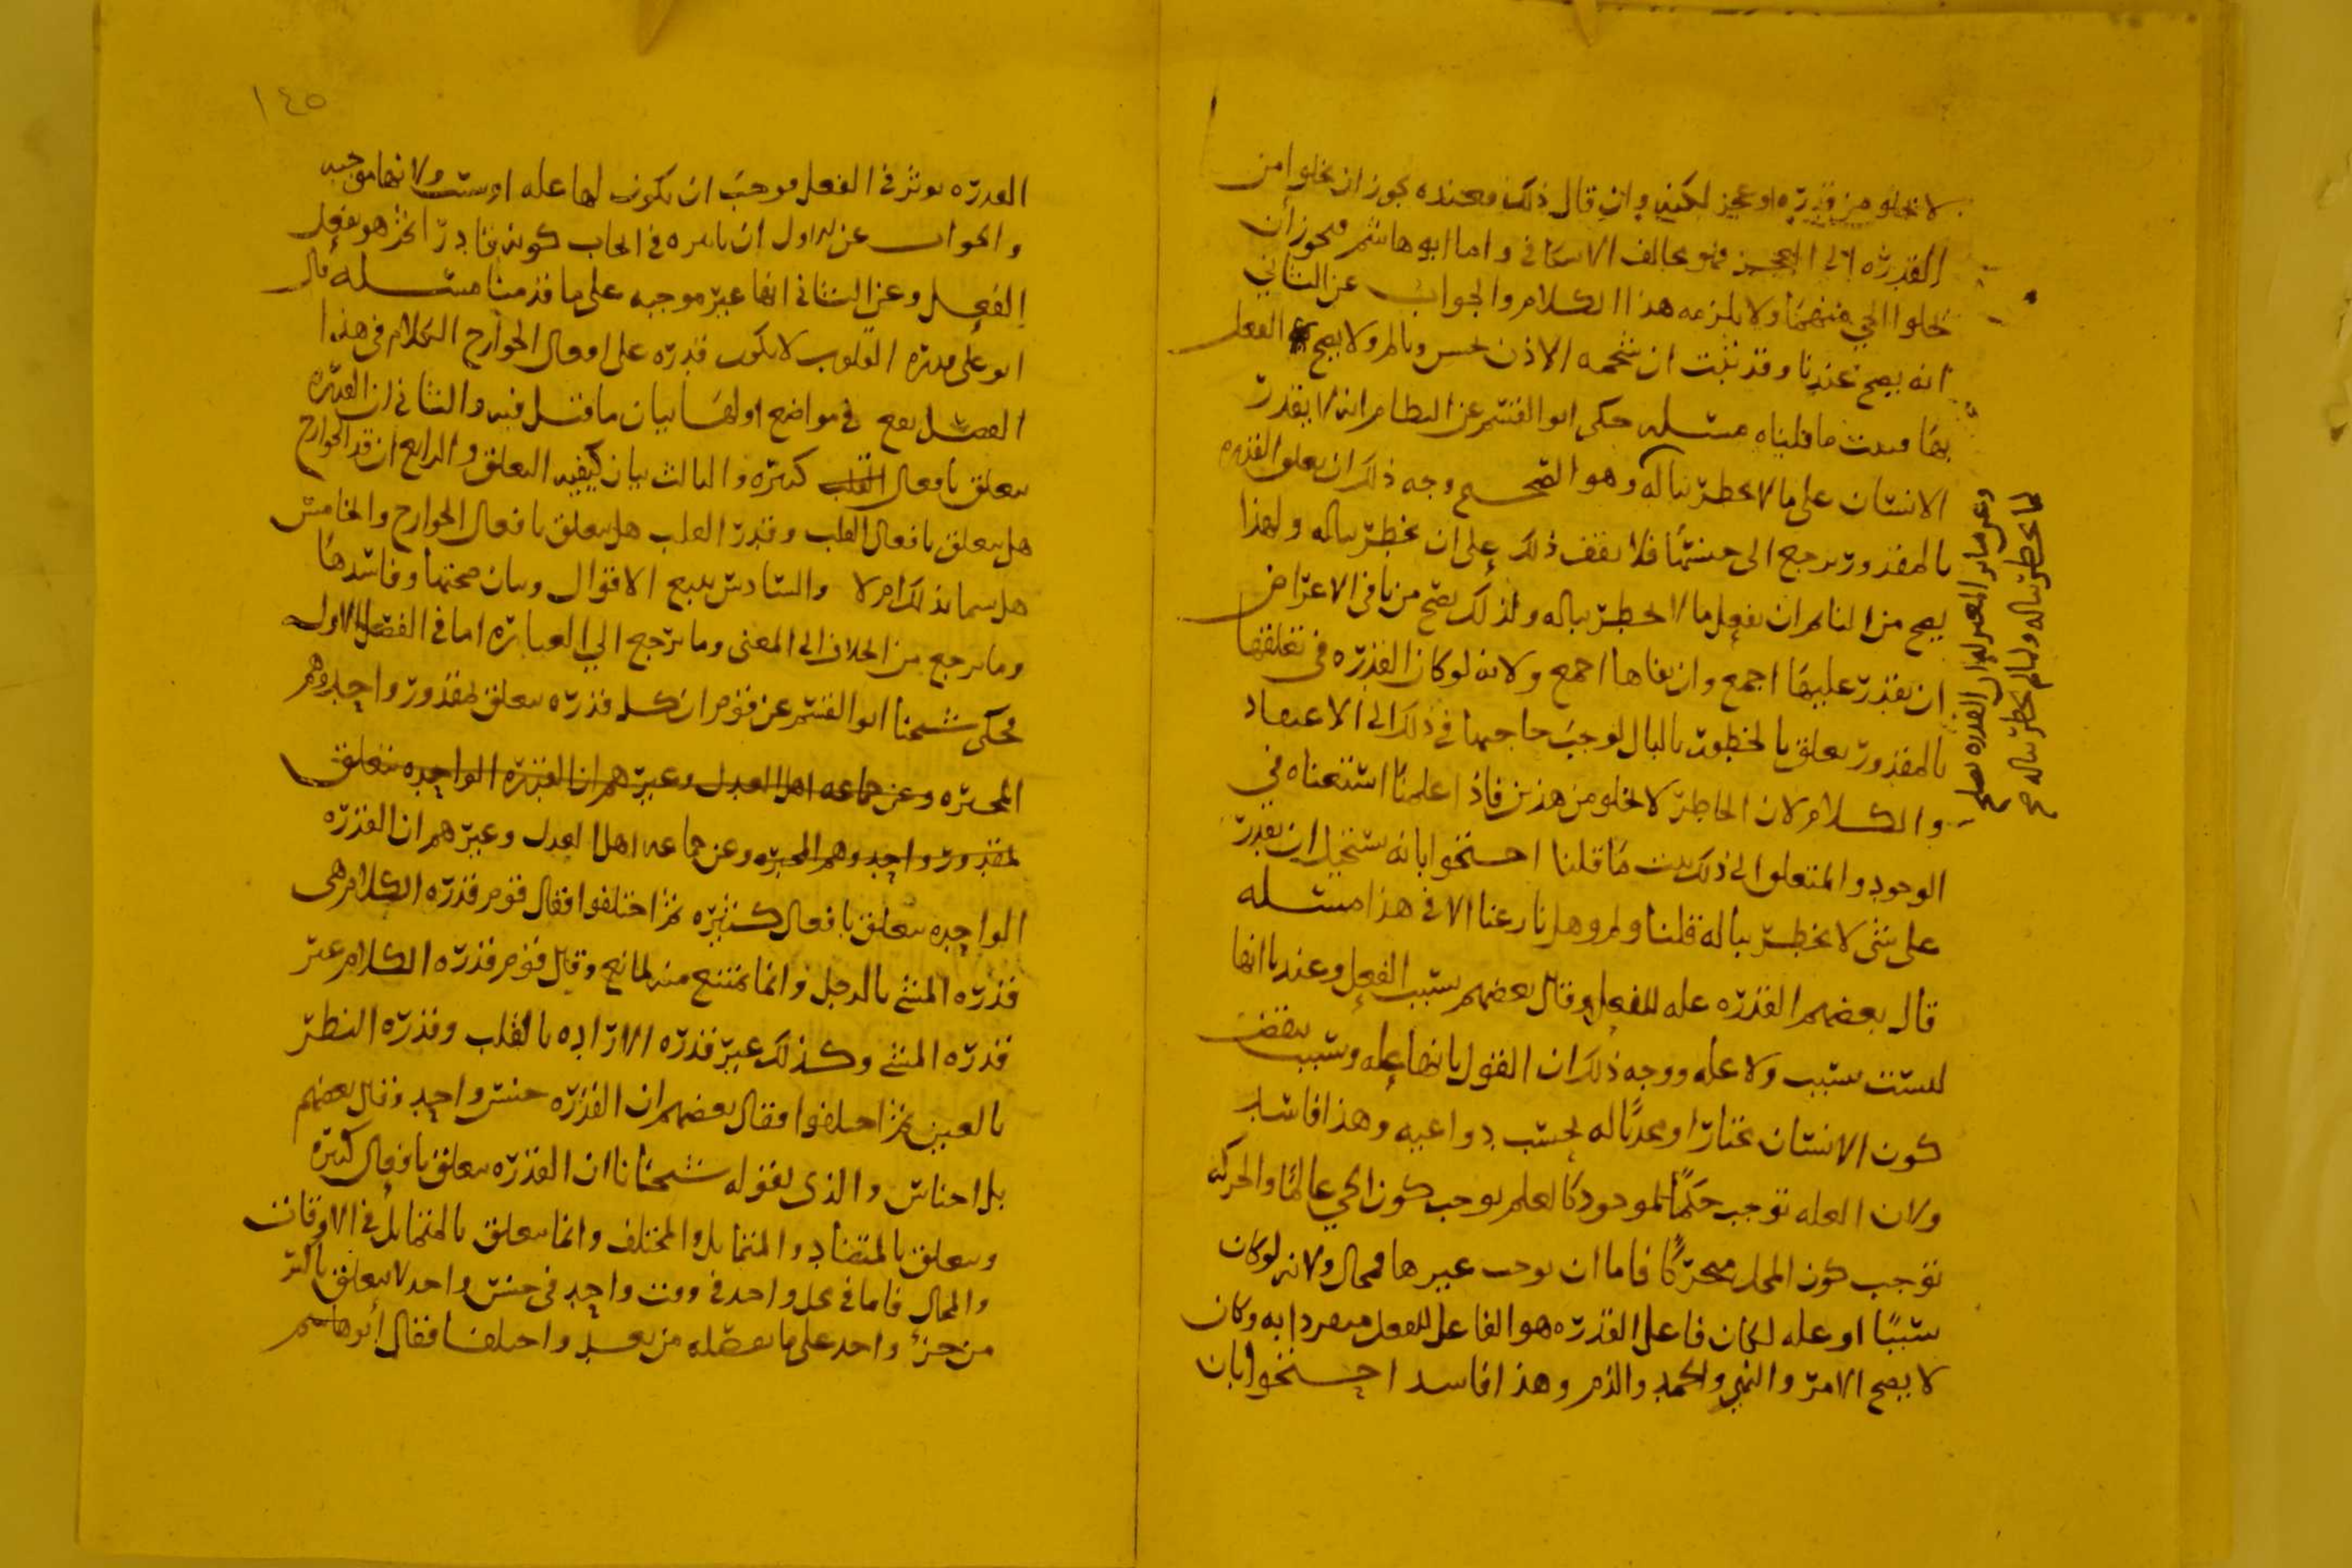 لا يخلو من قدره او عجز لكنه وان قال ذلك فعنده يجوز ان يخلوا من
القدره الى العجز فهو يخالف الاسكافي واما ابو هاشم فيجوز أن
يخلوا الحي منهما ولا يلزمه هذا الكلام والجواب عن الثاني
انه يصح عندنا وقد ثبت ان شحمه الاذن تحس وتالم ولا يصح الفعل
بها فثبت ما قلناه مسله حكى ابو القسم عن النظام انه لا يقدر
الانسان على ما لا يخطر بباله وهو الصحيح وجه ذلك ان تعلق القدره
بالمقدور يرجع الى جنسها فلا يقف ذلك على ان يخطر بباله ولهذا
يصح من النائم ان يفعل ما لا يخطر بباله ولذلك يصح من نافي الاعراض
ان يقدر عليها اجمع وان نفاها اجمع ولانه لو كان القدره في تعلقها
بالمقدور تعلق بالخطور بالبال لوجب حاجتها في ذلك الى الاعتقاد
والكلام لان الخاطر لا يخلو من هذين فاذا علمنا استغناه في
الوجود والتعلق الى ذلك ثبت ما قلنا احتجوا بانه يستحيل ان يقدر
على شي لا يخطر بباله قلنا ولم وهل نازعنا الا في هذا مسله
قال بعضهم القدره عله للفعل وقال بعضهم سبب الفعل وعندنا انها
ليست بسبب ولا عله ووجه ذلك ان القول بانها عله وسبب ينقض
كون الانسان مختارا ومحدثا له بحسب دواعيه وهذا فاسد
ولان العله توجب حكما لموجود كالعلم يوجب كون الحي عالما والحركه
توجب كون المحل متحركا فاما ان يوجب غيرها فمحال ولانه لو كان
سببا او عله لكان فاعل القدره هو الفاعل للفعل منفردا به وكان
لا يصح الامر والنهي والحمد والذم وهذا فاسد احتجوا بان
القدره تصلح
لما يخطر بباله ولما لم يخطر بباله صح
١٤٥
القدره تؤثر في الفعل فوجب ان تكون لها عله او سبب ولانها موجبه
والجواب عن الاول ان تاثيره في ايجاب كونه قادرا ثم هو يفعل
الفعل وعن الثاني انها غير موجبه على ما قدمنا مسله قال
ابو علي قدره القلوب لا يكون قدره على افعال الجوارح الكلام في هذا
الفصل يقع في مواضع اولها بيان ما قيل فيه والثاني ان القدره
تتعلق بافعال القلب كثيره والثالث بيان كيفيه التعلق والرابع ان قدر الجوارح
هل يتعلق بافعال القلب وقدر القلب هل يتعلق بافعال الجوارح والخامس
هل يسما بذلك ام لا والسادس تتبع الاقوال وبيان صحتها وفاسدها
وما يرجع من الخلاف الى المعنى وما يرجع الى العباره اما في الفصل الاول
فحكى شيخنا ابو القسم عن قوم ان كل قدره تتعلق بمقدور واحد وهم
المجبره وعن جماعه اهل العدل وغيرهم ان القدره الواحده تتعلق
بمقدور واحد وهم المجبره وعن جماعه اهل العدل وغيرهم ان القدره
الواحده تتعلق بافعال كثيره ثم اختلفوا فقال قوم قدره الكلام هى
قدره المشي بالرجل وانما يمتنع منه لمانع وقال قوم قدره الكلام غير
قدره المشي وكذلك غير قدره الاراده بالقلب وقدره النظر
بالعين ثم اختلفوا فقال بعضهم ان القدره جنس واحد وقال بعضهم
بل اجناس والذي يقوله شيخانا ان القدره تتعلق بافعال كثيره
وتتعلق بالمتضاد والمتماثل والمختلف وانما تتعلق بالمتماثل في الاوقات
والمحال فاما في محل واحد في وقت واحد في جنس واحد لا يتعلق باكثر
من جزء واحد على ما نفصله من بعد واختلفا فقال أبو هاشم